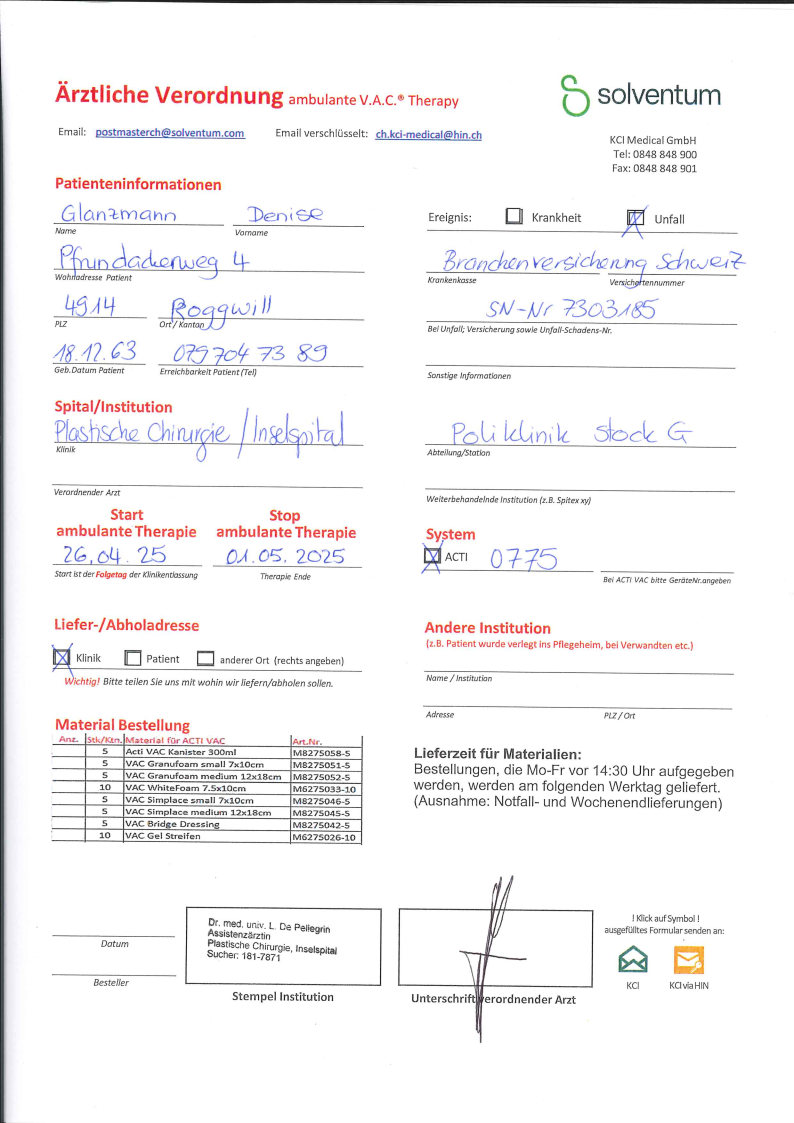 Ärztliche Verordnung ambulante V.A.C.® Therapy
solventum
Email: postmasterch@solventum.com Email verschlüsselt: ch.kci-medical@hin.ch
KCI Medical GmbH
Tel: 0848 848 900
Fax: 0848 848 901
Patienteninformationen
Glanzmann Denise
Name Vorname
Ereignis: Krankheit Unfall
Pfrundackerweg 4
Wohnadresse Patient
Branchenversicherung Schweiz
Krankenkasse Versichertennummer
4914 Roggwill
PLZ Ort / Kanton
SN-Nr 7303185
Bei Unfall; Versicherung sowie Unfall-Schadens-Nr.
18.12.63 079 704 73 89
Geb.Datum Patient Erreichbarkeit Patient (Tel)
Sonstige Informationen
Spital/Institution
Plastische Chirurgie / Inselspital
Klinik
Poliklinik Stock G
Abteilung/Station
Verordnender Arzt
Weiterbehandelnde Institution (z.B. Spitex xy)
Start Stop
ambulante Therapie ambulante Therapie
26.04.25 01.05.2025
Start ist der Folgetag der Klinikentlassung Therapie Ende
System
ACTI 0775
Bei ACTI VAC bitte GeräteNr.angeben
Liefer-/Abholadresse
Klinik Patient anderer Ort (rechts angeben)
Wichtig! Bitte teilen Sie uns mit wohin wir liefern/abholen sollen.
Andere Institution
(z.B. Patient wurde verlegt ins Pflegeheim, bei Verwandten etc.)
Name / Institution
Adresse PLZ / Ort
Material Bestellung
Anz. Stk/Ktn. Material für ACTI VAC Art.Nr.
5 Acti VAC Kanister 300ml M8275058-5
5 VAC Granufoam small 7x10cm M8275051-5
5 VAC Granufoam medium 12x18cm M8275052-5
10 VAC WhiteFoam 7.5x10cm M6275033-10
5 VAC Simplace small 7x10cm M8275046-5
5 VAC Simplace medium 12x18cm M8275045-5
5 VAC Bridge Dressing M8275042-5
10 VAC Gel Streifen M6275026-10
Lieferzeit für Materialien:
Bestellungen, die Mo-Fr vor 14:30 Uhr aufgegeben
werden, werden am folgenden Werktag geliefert.
(Ausnahme: Notfall- und Wochenendlieferungen)
Datum
Besteller
Dr. med. univ. L. De Pellegrin
Assistenzärztin
Plastische Chirurgie, Inselspital
Sucher: 181-7871
Stempel Institution
Unterschrift verordnender Arzt
! Klick auf Symbol !
ausgefülltes Formular senden an:
KCI KCI via HIN